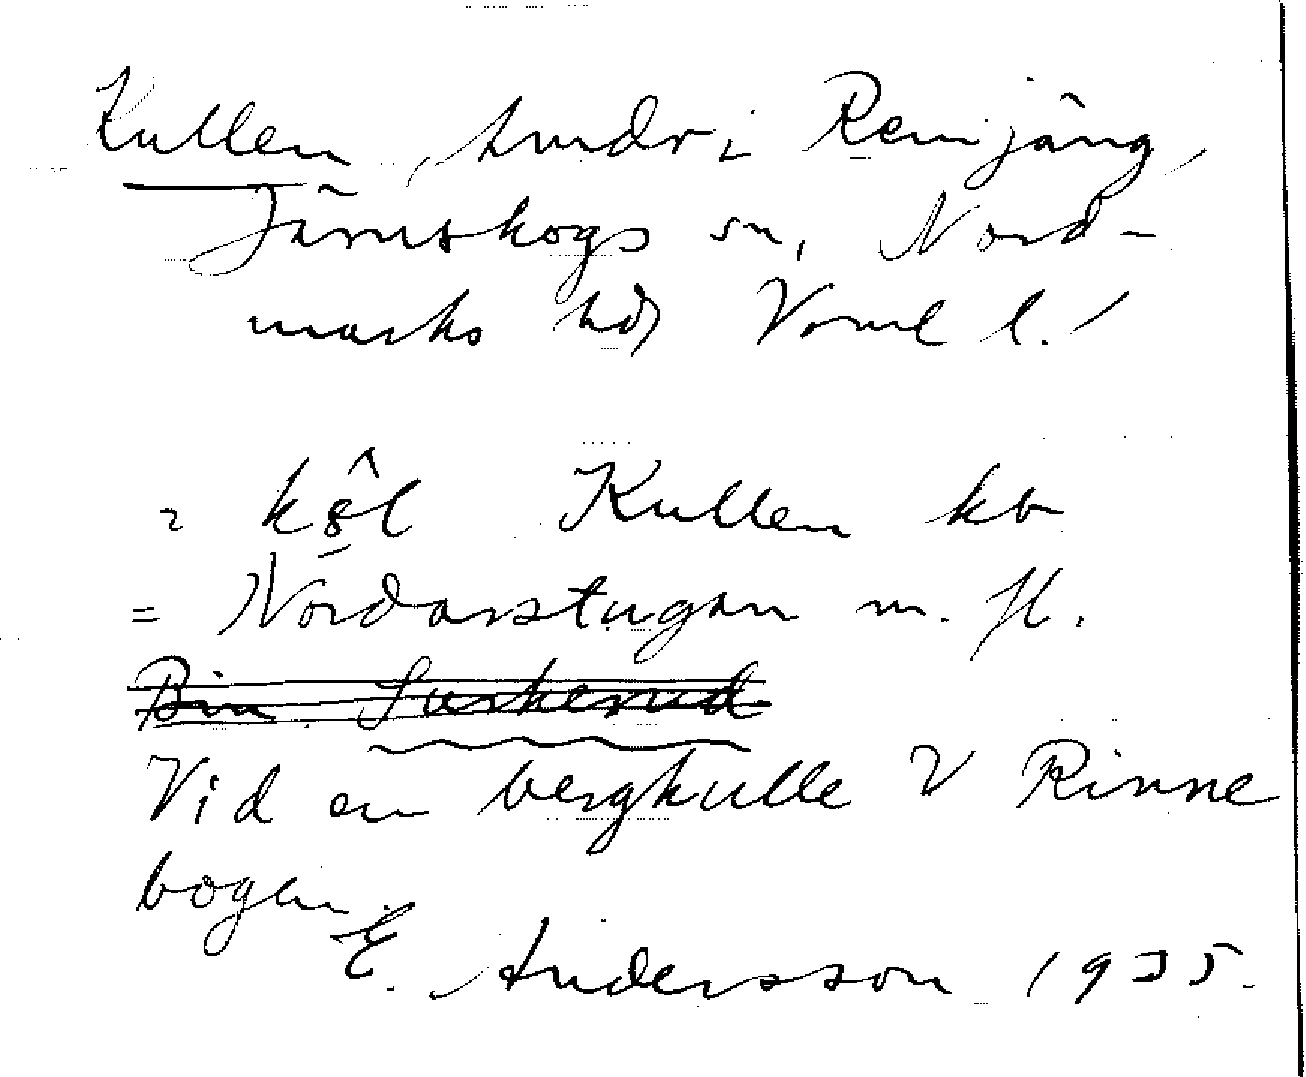 Kullen, hmdr i Renjäng,
Järnskogs sn, Nord-
marks hd, Vrml l.
Kullen kb
= Nordarstugan m. fl.
Bin Surkerud
Vid en bergkulle V Rinne
bogen.
E. Andersson 1935.